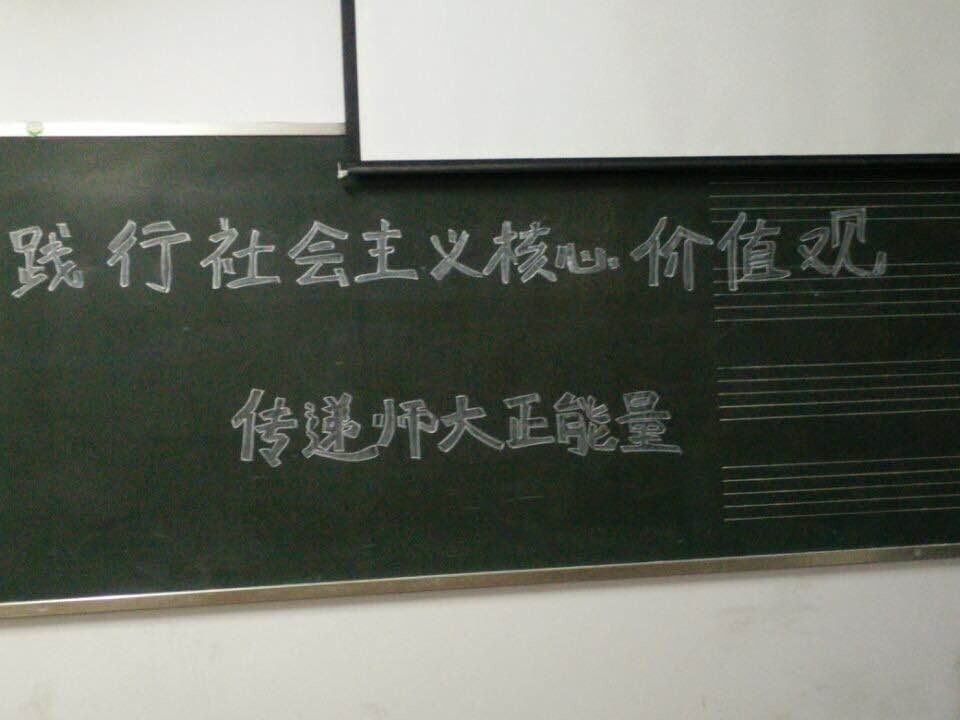 践行社会主义核心价值观
传递师大正能量